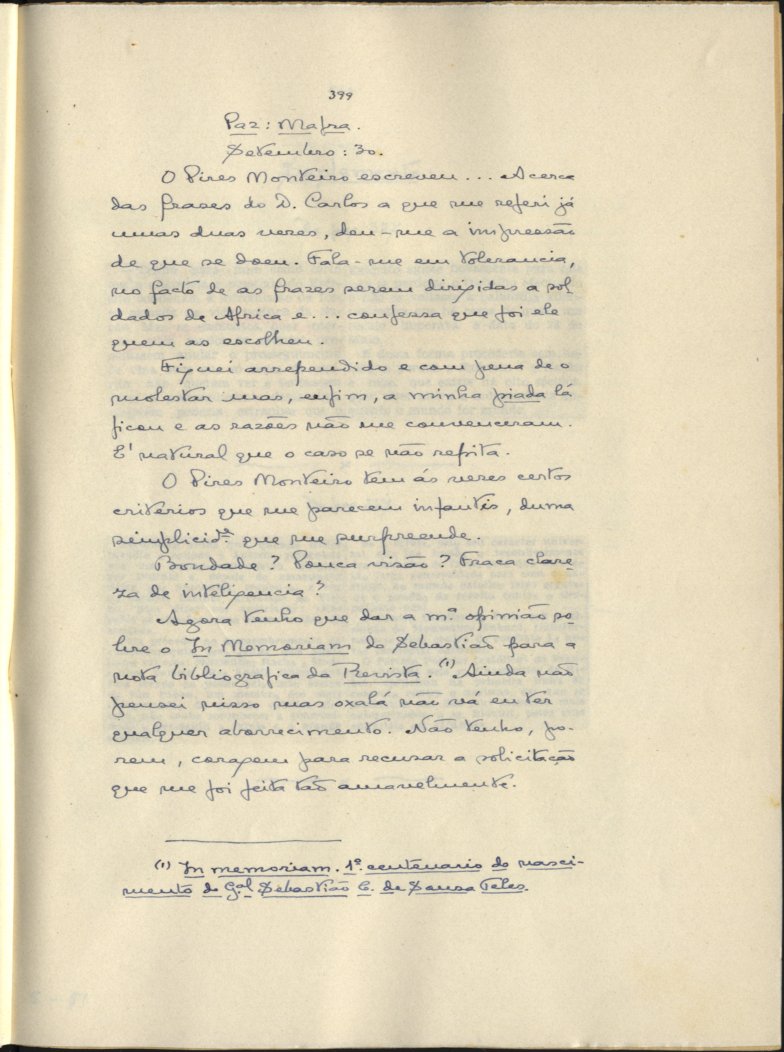 399
Paz: Mafra.
Setembro: 30.
O Pires Monteiro escreveu... Acerca
das frases do D. Carlos a que me referi já
umas duas vezes, deu-me a impressão
de que se doeu. Fala-me em tolerancia,
no facto de as frazes serem dirigidas a sol-
dados de Africa e... confessa que foi ele
quem as escolheu.
Fiquei arrependido e com pena de o
molestar mas, enfim, a minha piada lá
ficou e as razões não me convenceram.
E' natural que o caso se não repita.
O Pires Monteiro tem ás vezes certos
criterios que me parecem infantis, duma
simplicid.e que me surpreende.
Bondade? Pouca visão? Fraca clare-
za de inteligencia?
Agora tenho que dar a m.a opinião so-
bre o In Memoriam do Sebastião para a
nota bibliografica da Revista.(1) Ainda não
pensei nisso mas oxalá não vá eu ter
qualquer aborrecimento. Não tenho, po-
rem, coragem para recusar a solicitação
que me foi feita tão amavelmente.
(1) In memoriam. 1.º centenario do nasci-
mento do G.al Sebastião C. de Sousa Teles.